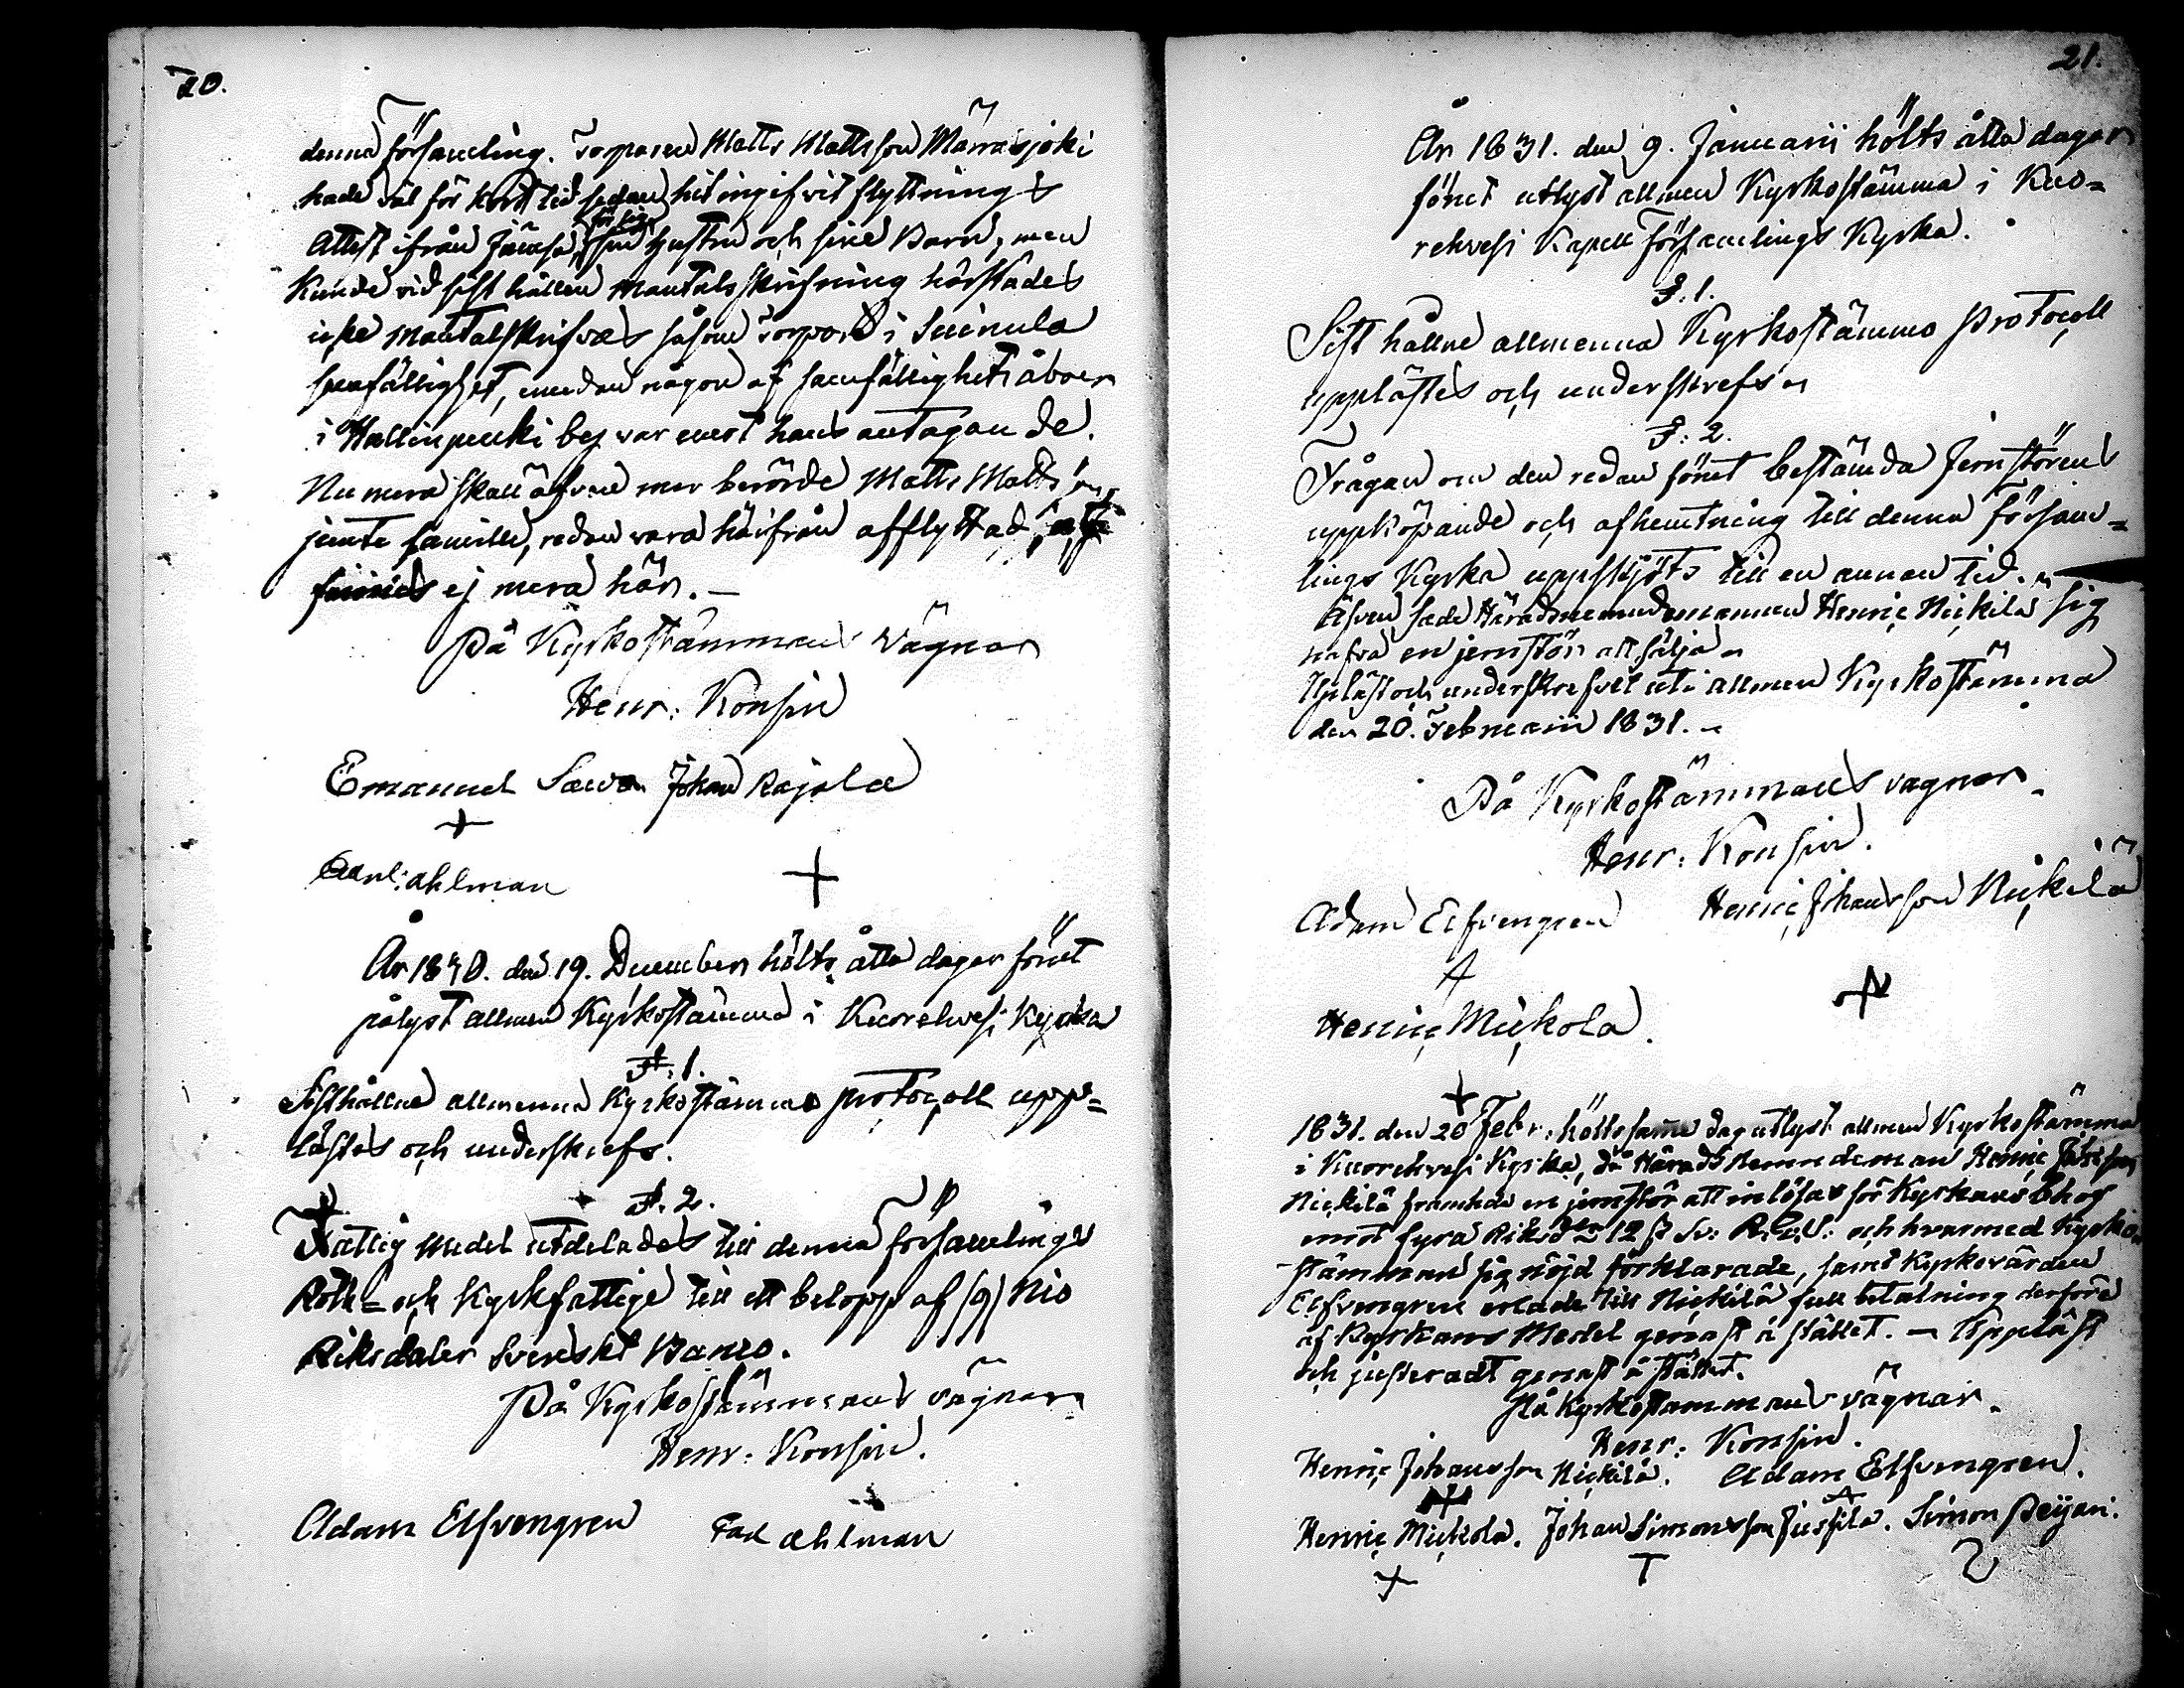 20.
denna församling. Torparen Matts Mattsson Mämäsjoki
hade väl för kort tid sedan hit ingifvit flyttnings
Attest ifrån Jämsä, för sig, sin hustru och sine Barn, men
Kunde vid sist hållen Mantalsskrifning härstädes
icke mantalskrifvas såsom Torpare i Suinula
samfällighet, emedan någon af samfällighets åboer
i Hallinpenki by var emot hans antagande.
Nu mera skall äfven mer berörde Matts Mattsson
jemte famille, redan vara härifrån afflyttad,
finnes ej mera här. —
På Kyrkostämmans vägnar
Henr: Konsin
Emanuel Sawo Johan Rajala
+
Ahlman
+
År 1830. den 19. December hölts åtta dagar förut
pålyst allmän Kyrkostämma i Kuorehvesi Kyrka
§. 1.
Sisthållne allmenna Kyrkostämmo protocoll upp=
lästes och underskrefs.
§. 2.
Fattig Medel utdelades till denna församlings
Rote= och Kyrkfattige till ett belopp af (9) Nio
Riksdaler Svenskt Banco.
På Kyrkostämmans vägnar
Henr: Konsin.
Adam Elfvengren Ahlman
21.
År 1831. den 9. Januarii hölts åtta dagar
förut utlyst allmen Kyrkostämma i Kuo=
rehvesi Kapell Församlings Kyrka.
§. 1.
Sist hållne allmenna Kyrkostämmo Protocoll
upplästes och underskrefs.
§. 2.
Frågan om den redan förut bestämda Jernstörens
uppköpande och afhemtning till denna försam=
lings Kyrka uppskjöts till en annan tid.
Äfven sade Häradsnemndemannen Henric Nickilä sig
hafva en jernstör att sälja.
Upläst och underskrefvet uti allmen Kyrkostämma
den 20. Februarii 1831. —
På Kyrkostämmans vägnar.
Henr: Konsin.
Adam Elfvengren Henric Johansson Nickilä
Henric Mickola.
+
1831. den 20 Febr. hölts samma dag utlyst allmen Kyrkostämma
i Kuorehvesi Kyrka, då Häradsnemndeman Henric Johansson
Nickilä framhade en jernstör att inlösas för Kyrkans behof
emot fyra Riksd. 12 s. Sv: R.G.S: och hvarmed Kyrko-
stämman sig nöjd förklarade, samt Kyrkovärden
Elfvengren erlade till Nickilä full betalning derföre
af Kyrkans Medel genast å stället. — Uppläst
och justeradt genast å stället.
På Kyrkostämmans vägnar.
Henr: Konsin.
Henric Johansson Nickilä. Adam Elfvengren.
Henric Mickola. Johan Simonsson Jussila. Simon Peijari.
+ T